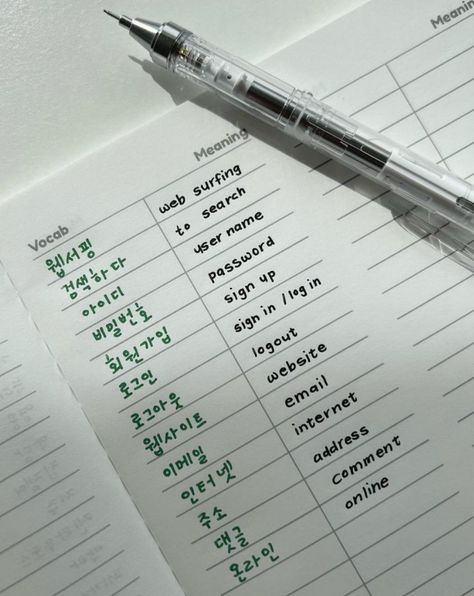 Meaning
Vocab Meaning
웹서핑 web surfing
검색하다 to search
아이디 user name
비밀번호 password
회원가입 sign up
로그인 sign in / log in
로그아웃 logout
웹사이트 website
이메일 email
인터넷 internet
주소 address
댓글 comment
온라인 online